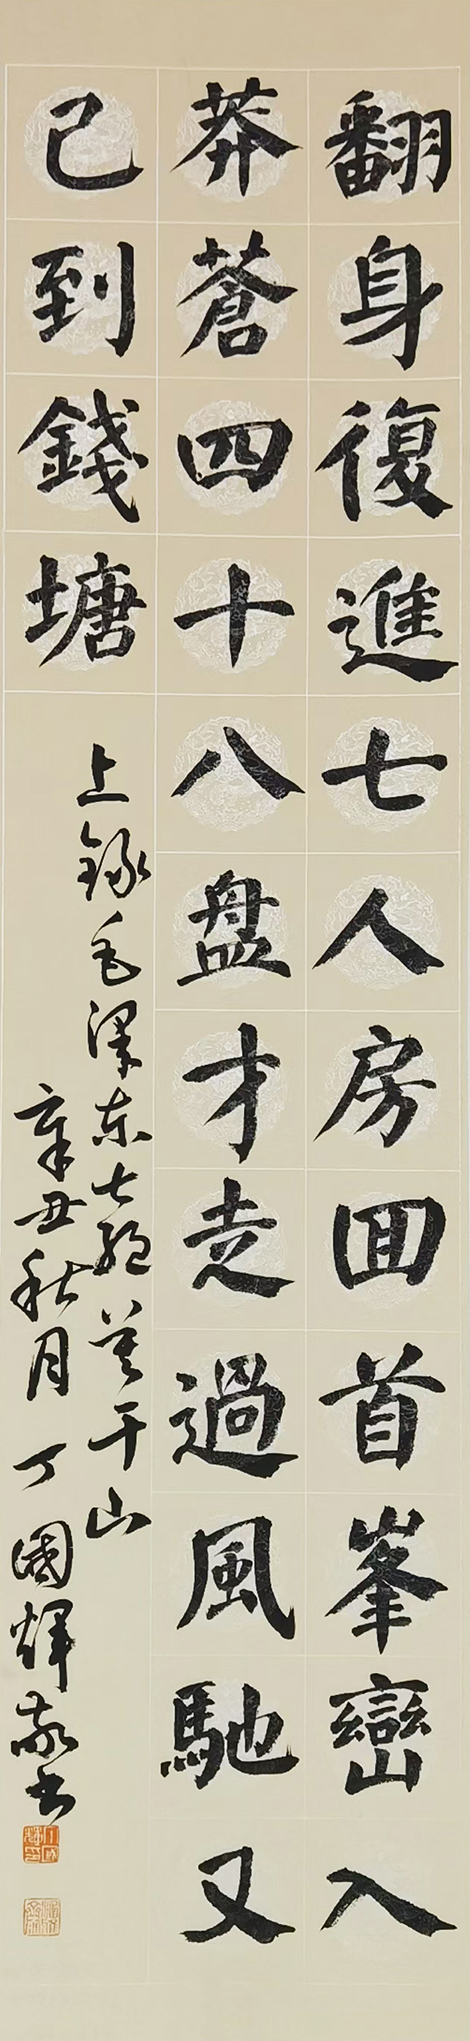 翻身復進七人房囬首峯巒入
莽蒼四十八盘才走過風馳又
已到錢塘
上録毛澤东七絶莫干山
辛丑秋月丁國輝敬书